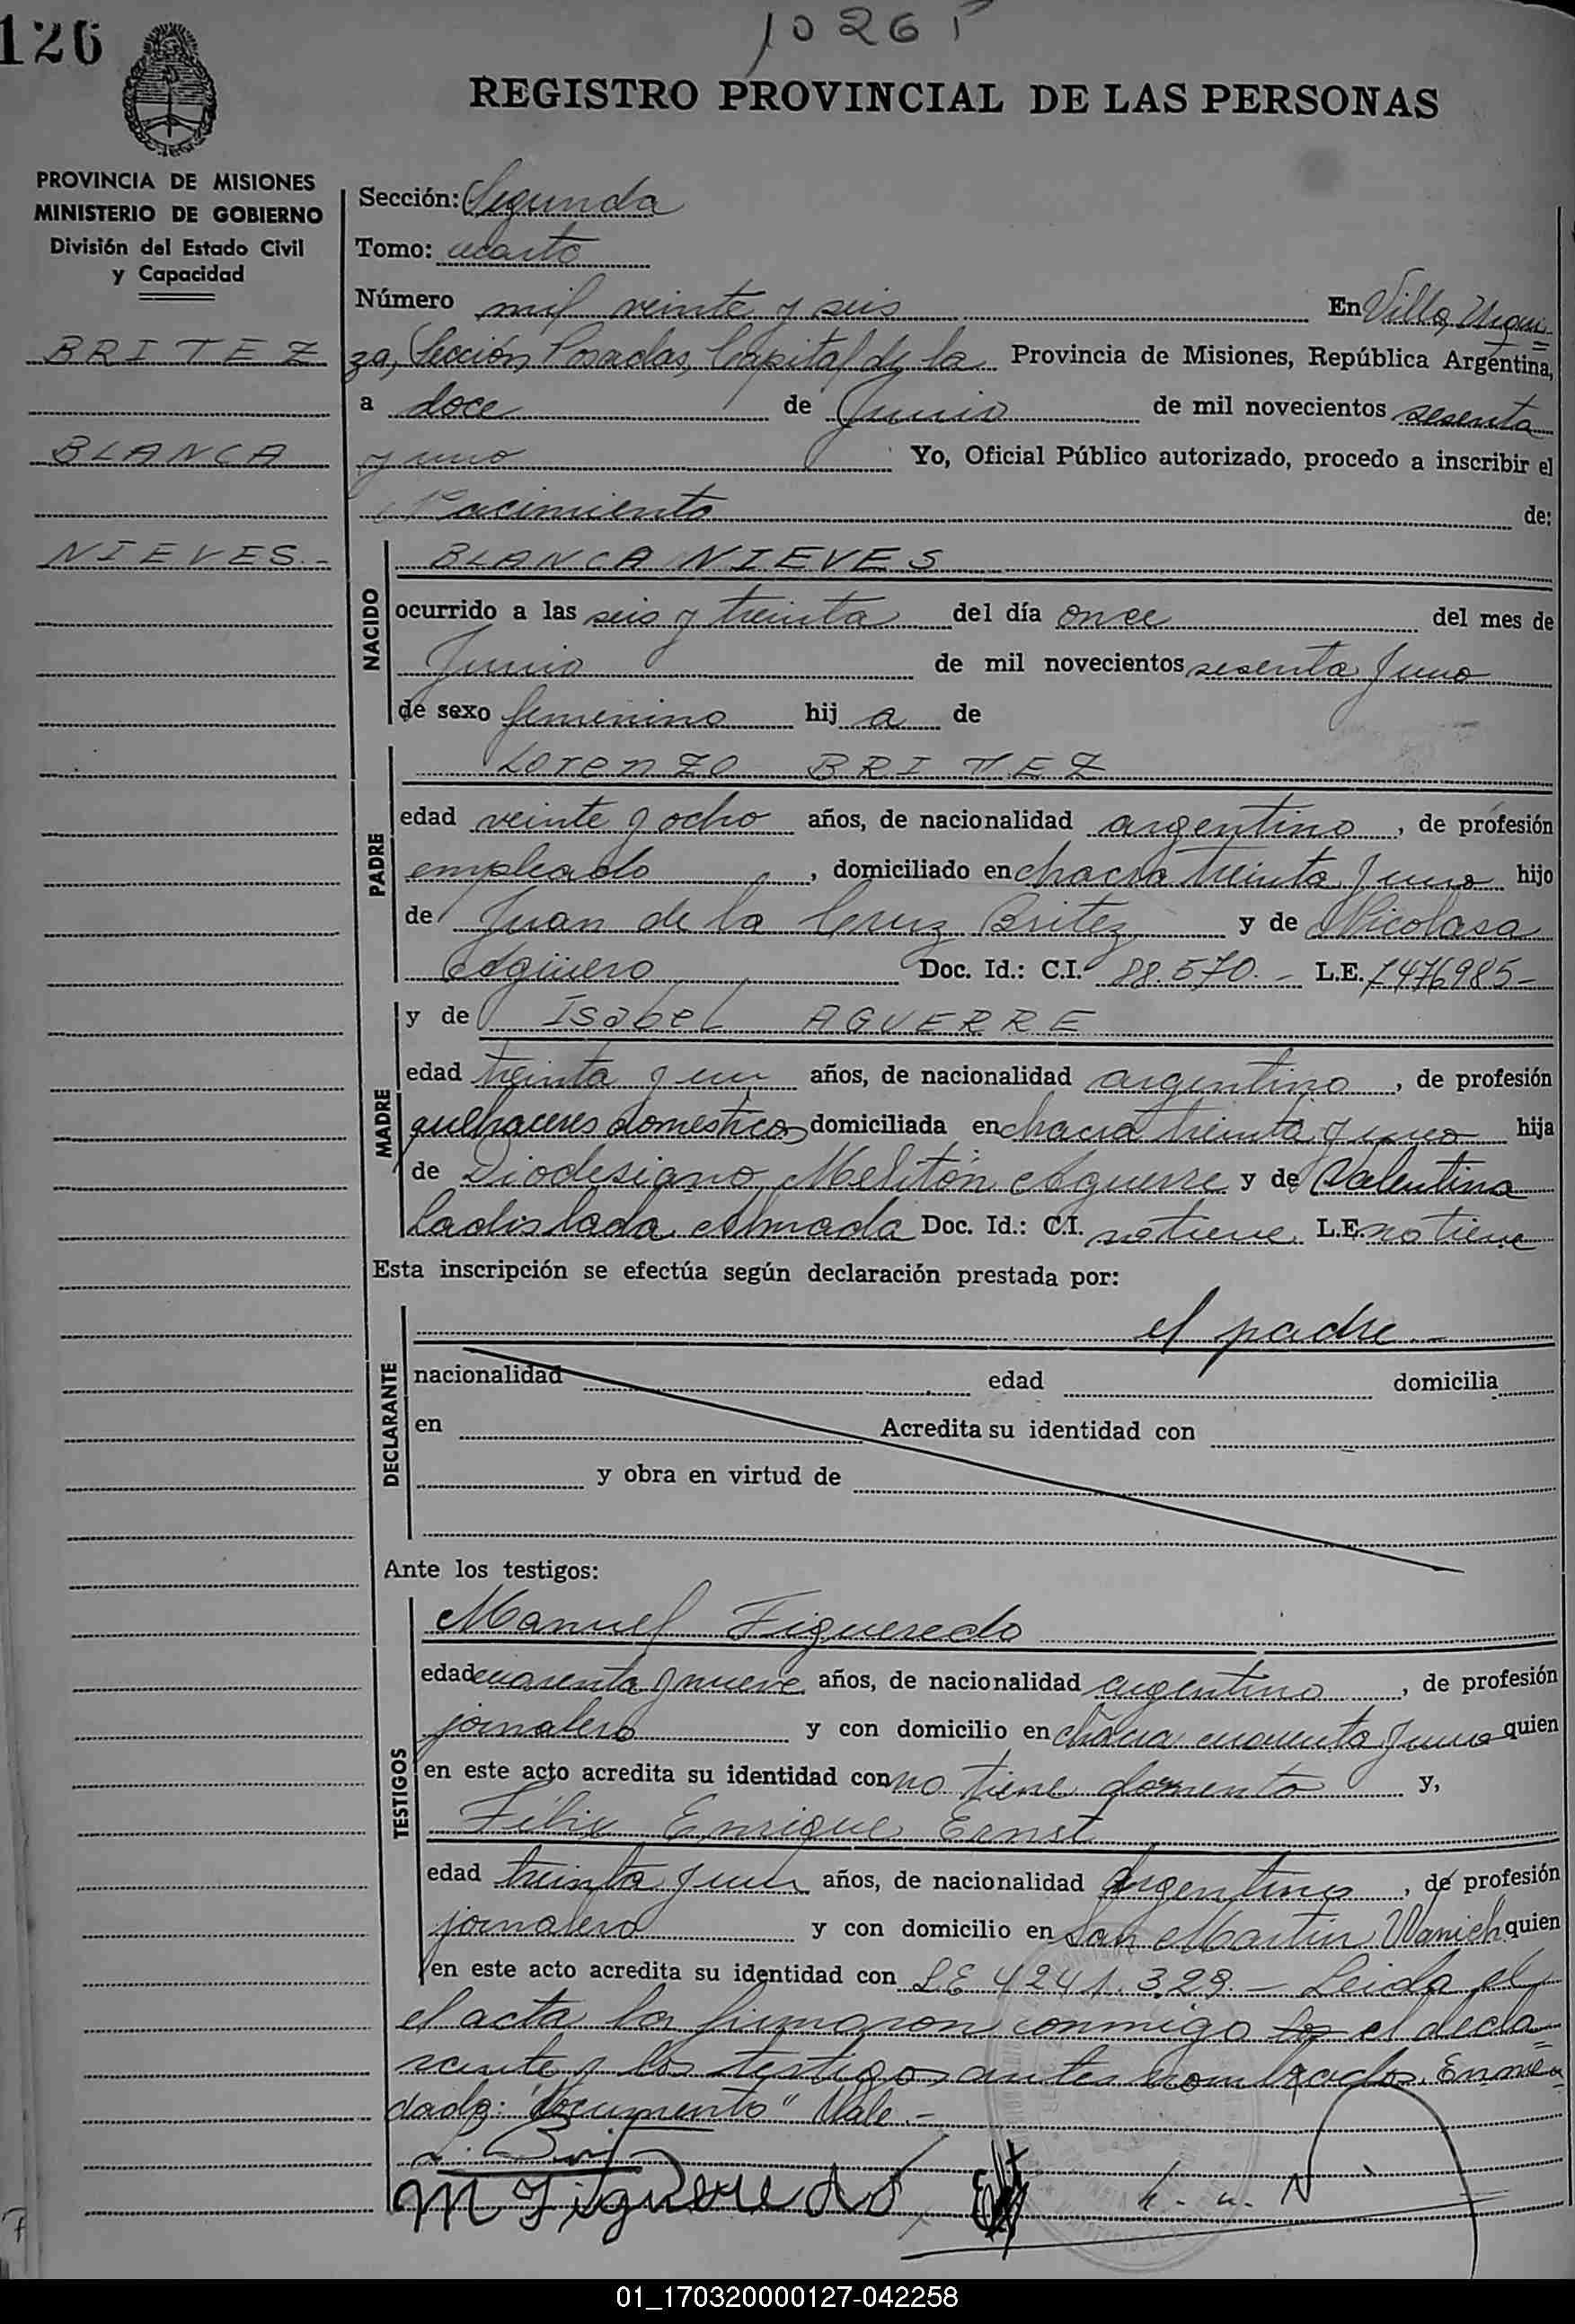 126
1026 F
REGISTRO PROVINCIAL DE LAS PERSONAS
PROVINCIA DE MISIONES
MINISTERIO DE GOBIERNO
División del Estado Civil
y Capacidad
BRITEZ
BLANCA
NIEVES.-
Sección: Segunda
Tomo: cuarto
Número mil veinte y seis En Villa Urqui=
za, Sección Posadas, Capital de la Provincia de Misiones, República Argentina,
a doce de Junio de mil novecientos sesenta
y uno Yo, Oficial Público autorizado, procedo a inscribir el
Nacimiento de:
NACIDO
BLANCA NIEVES
ocurrido a las seis y treinta del día once del mes de
Junio de mil novecientos sesenta y uno
de sexo femenino hij a de
PADRE
Lorenzo BRITEZ
edad veinte y ocho años, de nacionalidad argentino, de profesión
empleado, domiciliado en chacra treinta y uno hijo
de Juan de la Cruz Britez y de Nicolasa
Agüero Doc. Id.: C.I. 88.570.- L.E. 7476985-
MADRE
y de Isabel AGUERRE
edad treinta y un años, de nacionalidad argentina, de profesión
quehaceres domesticos domiciliada en chacra treinta y uno hija
de Diodesiano Melitón Aguerre y de Valentina
Ladislada Almada Doc. Id.: C.I. no tiene L.E. no tiene
Esta inscripción se efectúa según declaración prestada por:
DECLARANTE
el padre.-
nacionalidad edad domicilia
en Acredita su identidad con
y obra en virtud de
Ante los testigos:
TESTIGOS
Manuel Figueredo
edad cuarenta y nueve años, de nacionalidad argentino, de profesión
jornalero y con domicilio en chacra cuarenta y uno quien
en este acto acredita su identidad con no tiene documento y,
Félix Enrique Ernst
edad treinta y un años, de nacionalidad argentino, de profesión
jornalero y con domicilio en San Martin quien
en este acto acredita su identidad con L.E. 4241.329.- Leida el
el acta la firmaron conmigo los el decla=
rante y los testigos antes nombrados. Enmen
dado: "documento" Vale.-
M Figueredo
01_170320000127-042258